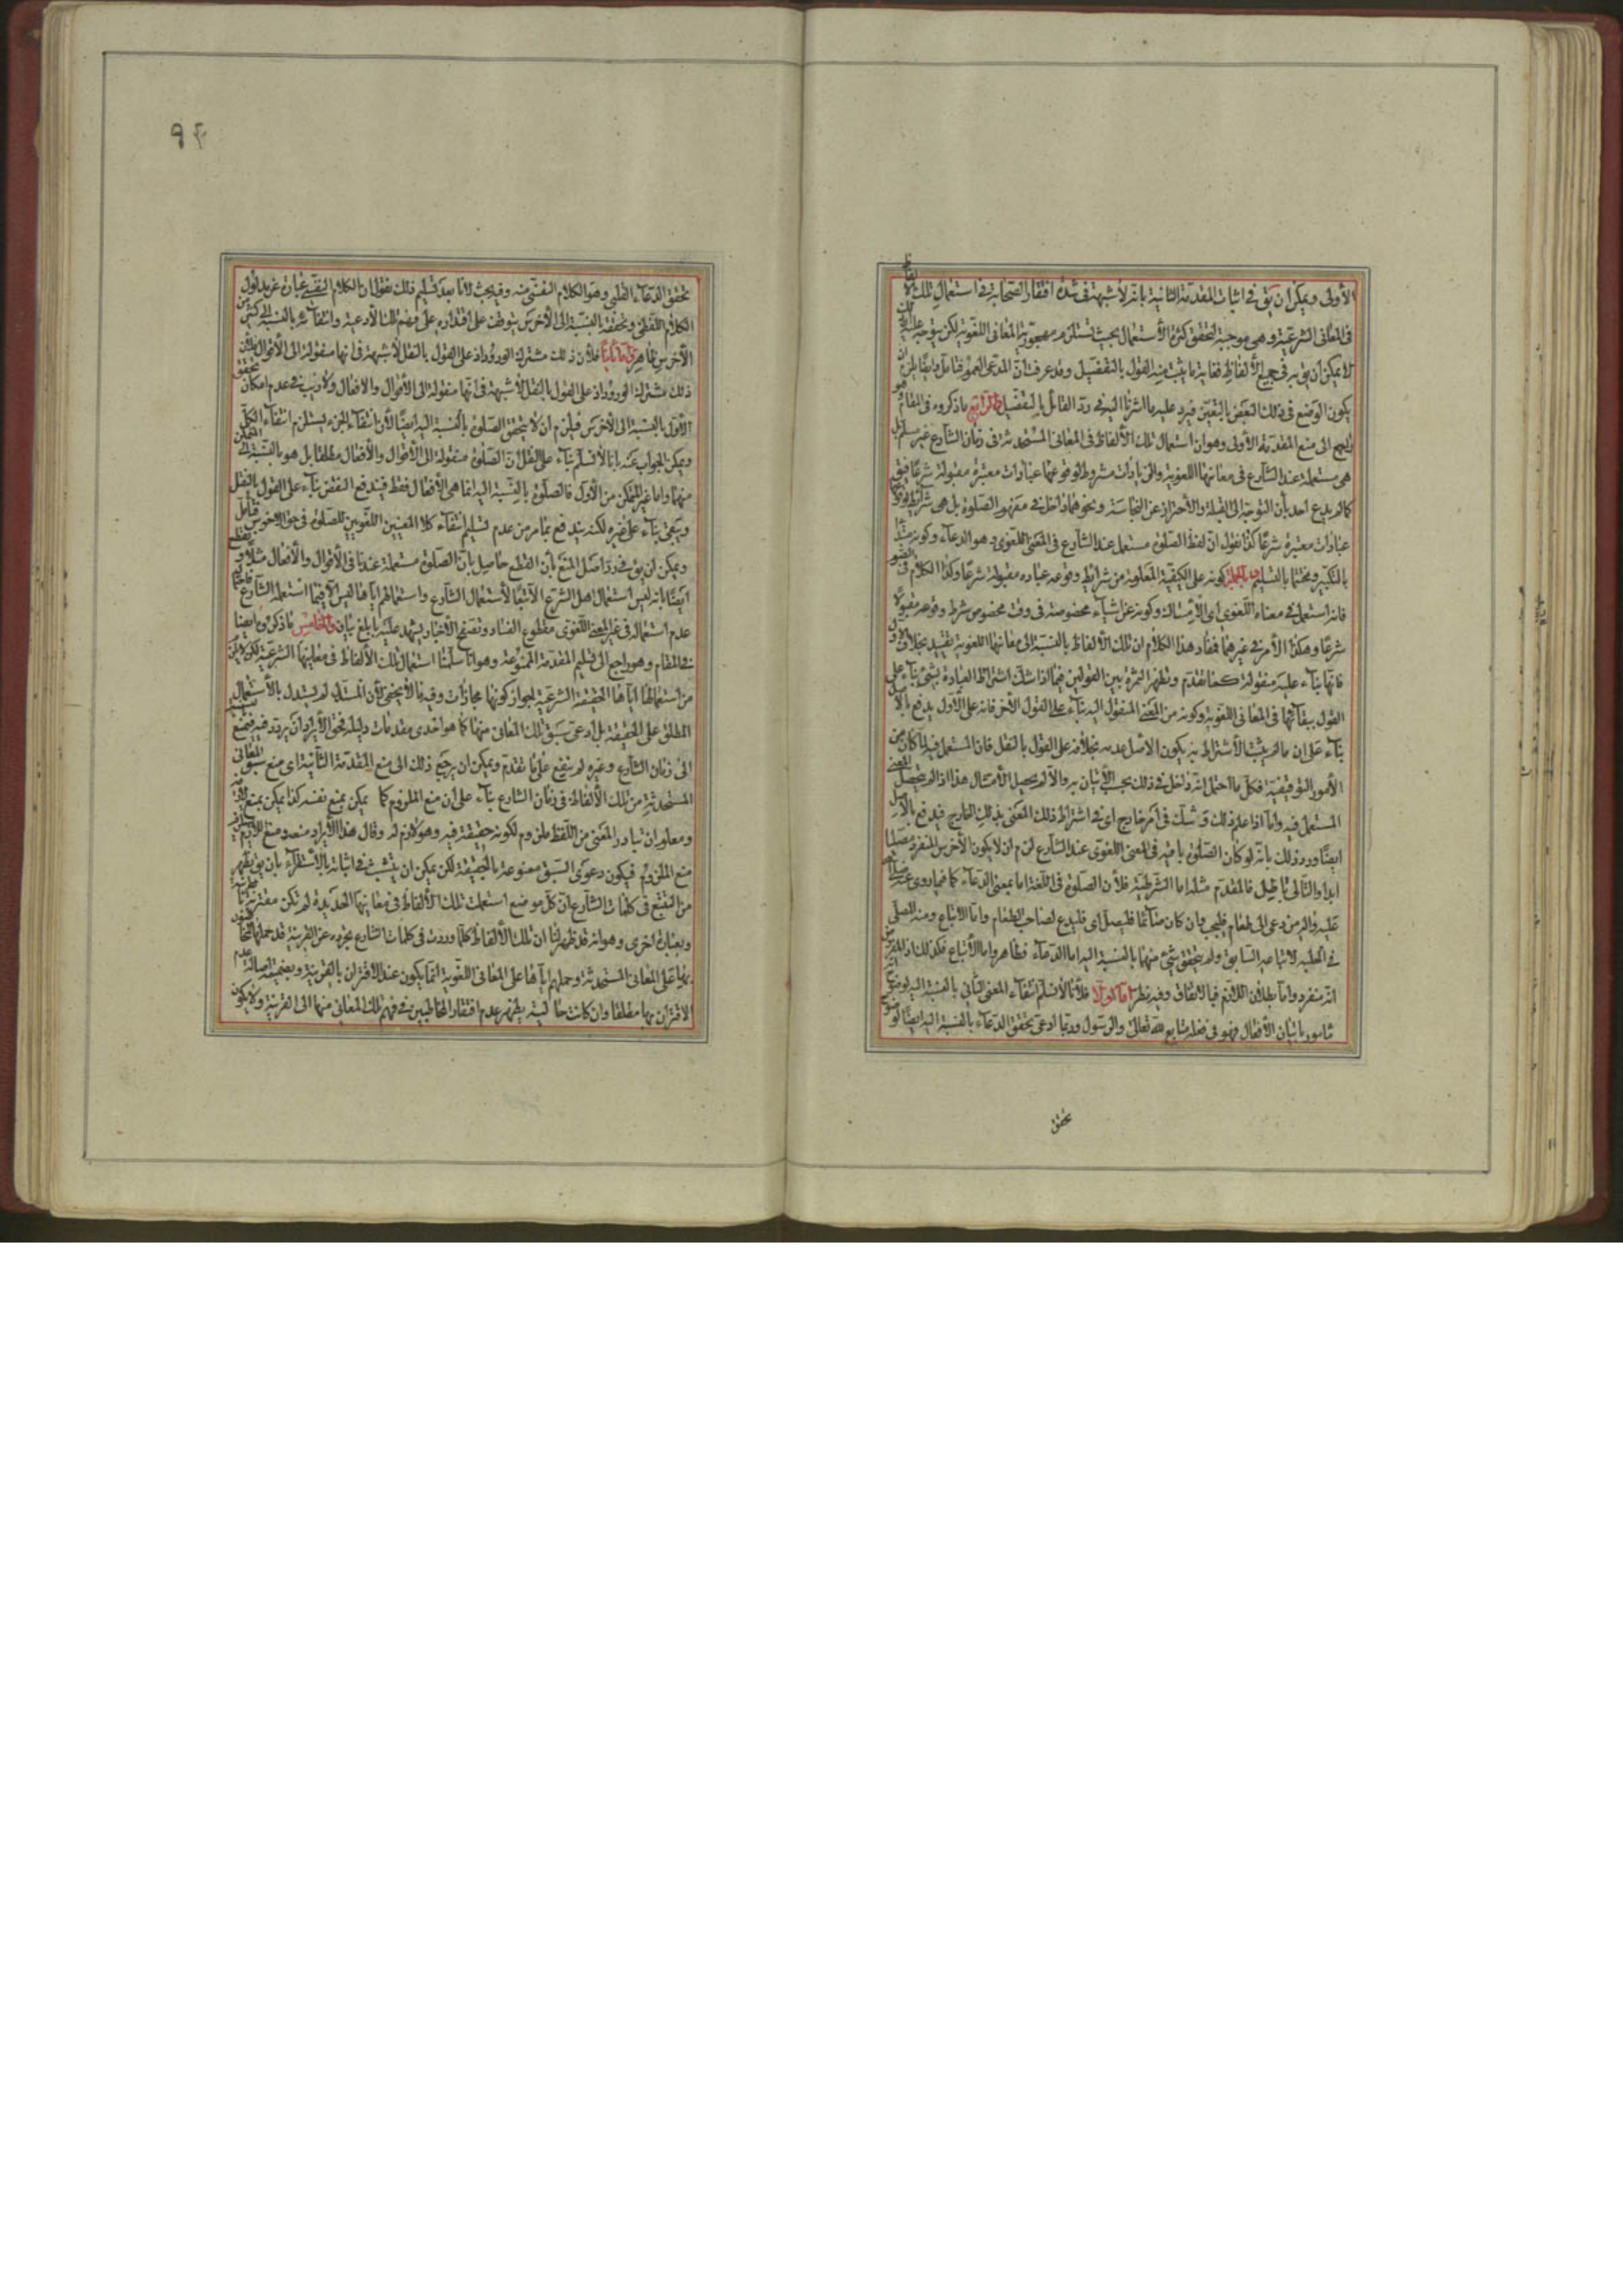 الأولى ويمكن ان يق في اثبات المقدمة الثانية بانه لا شبهة في شدة افتقار الصحابة في استعمال تلك الالفاظ
في المعاني الشرعية وهي موجبة لتحقق كثرة الأستعمال بحيث تستلزم مهجورية المعاني اللغوية لكن يتوجه عليه انه
لا يمكن ان يق به في جميع الألفاظ فغاية ما يثبت منه القول بالتفصيل وقد عرفت ان المدعى العموم فتامل وايضا يلزم ان
يكون الوضع في ذلك البعض بالتعين فيرد عليه ما اشرنا اليه في رد القائل بالتفصيل والرابع ما ذكروه في المقام وهو
راجع الى منع المقدمة الأولى وهو ان استعمال تلك الألفاظ في المعاني المستحدثة في زمان الشارع غير مسلم بل
هي مستعملة عند الشارع في معانيها اللغوية والزيادات مشروط لوقوعها عبادات معتبرة مقبولة شرعا فيق
كما لم يدع احد بأن التوجه الى القبلة والأحتراز عن النجاسة ونحوهما داخل في مفهوم الصلوة بل هي شرائط لوقوعها
عبادات معتبرة شرعا كذا نقول ان لفظ الصلوة مستعمل عند الشارع في المعنى اللغوي وهو الدعاء وكونه مبتدأ
بالتكبير ومختتما بالتسليم وبالجملة كونه على الكيفية المعلومة من شرائط وقوعه عبادة مقبولة شرعا وكذا الكلام في الصوم
فانه استعمل في معناه اللغوي اي الأمساك وكونه عن اشياء مخصوصة في وقت مخصوص شرط وقوعه مقبولا
شرعا وهكذا الأمر في غيرهما فمفاد هذا الكلام ان تلك الألفاظ بالنسبة الى معانيها اللغوية تقييد بخلاف الأول
فانها بناء عليه منقولة كما تقدم وتظهر الثمرة بين القولين فيما اذا شك اشتراط العبادة بشيء بناء على
القول ببقائها في المعاني اللغوية وكونه من المعنى المنقول اليه بناء على القول الأخر فانه على الأول يدفع بالأصل
بناء على ان ما لم يثبت الأشتراط به يكون الاصل عدمه بخلافه على القول بالنقل فان المستعمل فيه لما كان من
الأمور التوقيفية فكل ما احتمل انه داخل في ذلك يجب الأتيان به والا لم يحصل الأمتثال هذا اذا لم يتحصل المعنى
المستعمل فيه واما اذا علم ذلك وشك في أمر خارج اي في اشتراط ذلك المعنى بذلك الخارج فيدفع بالأصل
ايضا ورد ذلك بانه لو كان الصلوة باقية في المعنى اللغوي عند الشارع لزم ان لا يكون الأخرس المنفرد مصليا
ابدا والتالي باطل فالمقدم مثله اما الشرطية فلأن الصلوة في اللغة اما بمعنى الدعاء كما فيما روى عنه صلى الله
عليه واله من دعى الى طعام فليجب وان كان صائما فليصل اي فليدع لصاحب الطعام واما الاتباع ومنه المصلي
في الحلبة لاتباعه السابق ولم يتحقق شيء منهما بالنسبة اليه اما الدعاء فظاهر واما الأتباع فكذلك اذ المفروض
انه منفرد واما بطلان اللازم فبالاتفاق وفيه نظر اما اولا فلأنا لا نسلم انتفاء المعنى الثاني بالنسبة اليه لوضوح انه
مأمور باتيان الأفعال فهو في فعله متابع لله تعالى والرسول وربما ادعى تحقق الدعاء بالنسبة اليه ايضا لوضوح
تحقق
٩٤
تحقق الدعاء القلبي وهو الكلام النفسي منه وفيه بحث لأنا بعد تسليم ذلك نقول ان الكلام النفسي عبارة عن مدلول
الكلام اللفظي وتحققه بالنسبة الى الأخرس يتوقف على اقتداره على فهم تلك الأدعية وانتفائه بالنسبة الى كثير من
الأخرس ظاهر واما ثانيا فلأن ذلك مشترك الورود اذ على القول بالنقل لا شبهة في انها منقولة الى الأقوال
ذلك مشترك الورود اذ على القول بالنقل لا شبهة في انها منقولة الى الأقوال والافعال ولا ريب في عدم امكان تحقق
الأول بالنسبة الى الأخرس فيلزم ان لا يتحقق الصلوة بالنسبة اليه ايضا لأن انتفاء الجزء يستلزم انتفاء الكل
ويمكن الجواب عنه بانا لا نسلم بناء على النقل ان الصلوة منقولة الى الأقوال والأفعال مطلقا بل هو بالنسبة الى المتمكن
منهما واما غير المتمكن من الأول فالصلوة بالنسبة اليه انما هي الأفعال فقط فيندفع النقض بناء على القول بالنقل
ويبقى بناء على غيره لكنه يندفع بما مر من عدم تسليم انتفاء كلا المعنيين اللغويين للصلوة في حق الاخرس فتأمل
ويمكن ان يق في رد اصل المنع بأن القطع حاصل بان الصلوة مستعملة عندنا في الأقوال والأفعال مثلا ونقطع
ايضا بانه ليس استعمال اهل الشرع الا تبعا لأستعمال الشارع واستعمالهم اياها ليس الا فيما استعمله الشارع
عدم استعماله في غير المعنى اللغوي مقطوع الفساد وتصفح الأخبار يشهد عليه بابلغ بيان والخامس ما ذكروه ايضا
في المقام وهو راجع الى تسليم المقدمة الممنوعة وهو انا سلمنا استعمال تلك الألفاظ في معانيها الشرعية لكن لا يلزم
من استعمالها اياها الحقيقة الشرعية لجواز كونها مجازات وفيه ما لا يخفى لأن المستدل لم يستدل بالأستعمال
المطلق على الحقيقة بل ادعى سبق تلك المعاني منها كما هو احدى مقدمات دليله فحق الأيراد ان يردد فيه فيمنع
الى زمان الشارع وغيره لم ينفع على ما تقدم ويمكن ان يرجع ذلك الى منع المقدمة الثانية اي منع سبق المعاني
المستحدثة من تلك الألفاظ في زمان الشارع بناء على ان منع الملزوم كما يمكن بمنع نفسه كذا يمكن بمنع لازمه
ومعلوم ان تبادر المعنى من اللفظ ملزوم لكونه حقيقة فيه وهو لازم له وقال هذا الأيراد منعه ومنع اللازم
منع الملزوم فيكون دعوى السبق ممنوعة بالحقيقة لكن يمكن ان يتشبث في اثباته بالأستقراء بان يق يظهر
من التتبع في كلمات الشارع ان كل موضع استعملت تلك الألفاظ في معانيها الجديدة لم تكن مقترنة
وبعبارة اخرى وهو انه قد ظهر لنا ان تلك الألفاظ كلما وردت في كلمات الشارع مجردة عن القرينة قد حملها
على المعاني المستحدثة وحملهم اياها على المعاني اللغوية انما يكون عند الاقتران بالقرينة وبضميمة اصالة عدم
الاقتران بها مطلقا وان كانت حالية يظهر عدم افتقار المخاطبين في فهم تلك المعاني منها الى القرينة ولا يكون